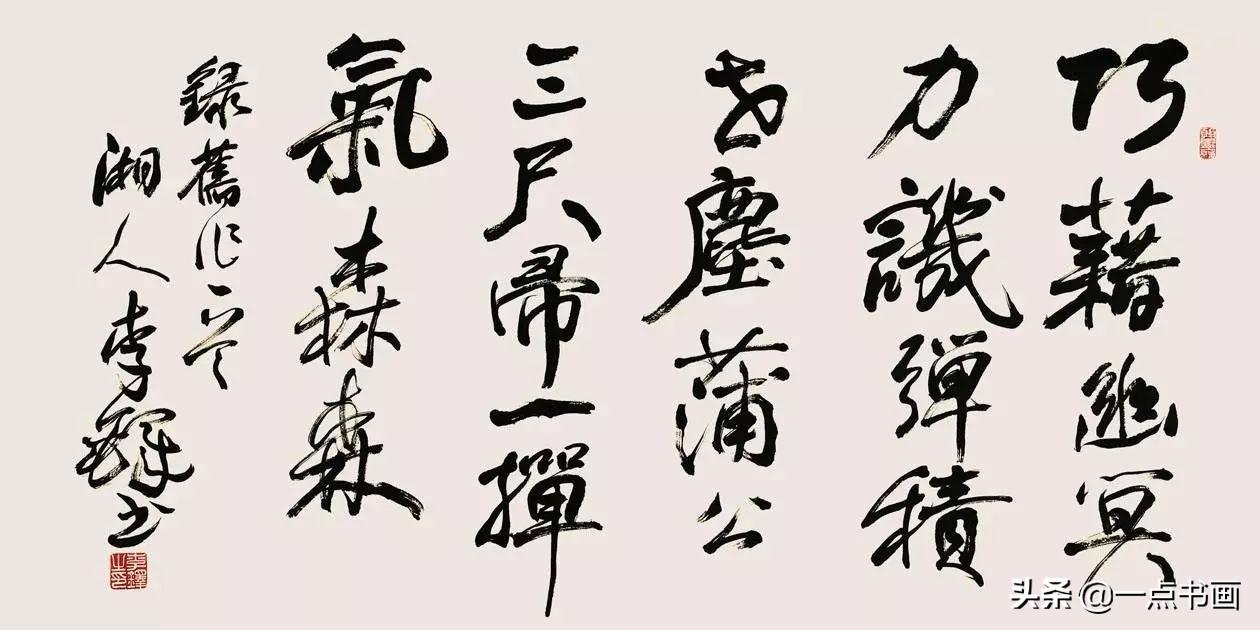 巧藉幽冥
力譏彈積
世塵蒲公
三尺帚一撣
氣森森
錄舊作一首
湘人李鐸書
李鐸之印
头条 @一点书画